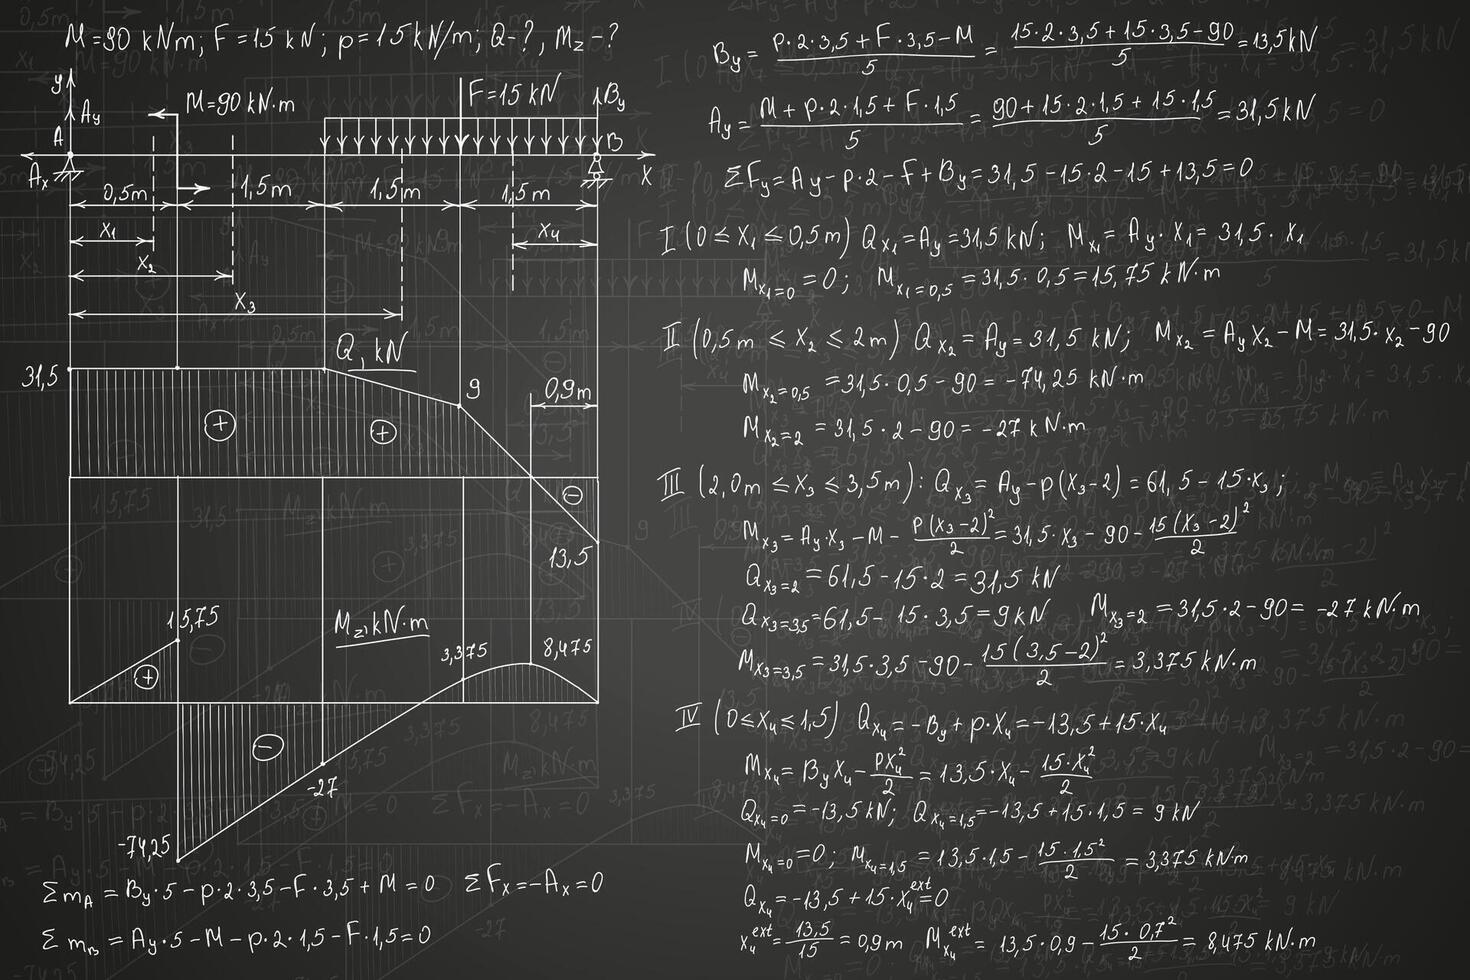 M=90 kNm; F=15 kN; p=15kN/m; Q-?, Mz-?
y
Ay
A
Ax
M=90 kN·m
F=15 kN
By
B
X
0,5m
1,5m
1,5m
1,5m
x1
x2
x3
x4
Q, kN
31,5
9
0,9m
13,5
+
+
−
15,75
Mz, kN·m
3,375
8,475
+
−
-27
-74,25
ΣmA = By·5 − p·2·3,5 − F·3,5 + M = 0   ΣFx = −Ax = 0
ΣmB = Ay·5 − M − p·2·1,5 − F·1,5 = 0
By = (p·2·3,5 + F·3,5 − M)/5 = (15·2·3,5 + 15·3,5 − 90)/5 = 13,5 kN
Ay = (M + p·2·1,5 + F·1,5)/5 = (90 + 15·2·1,5 + 15·1,5)/5 = 31,5 kN
ΣFy = Ay − p·2 − F + By = 31,5 − 15·2 − 15 + 13,5 = 0
I (0 ≤ X1 ≤ 0,5m) Qx1 = Ay = 31,5 kN; Mx1 = Ay·X1 = 31,5·x1
Mx1=0 = 0; Mx1=0,5 = 31,5·0,5 = 15,75 kN·m
II (0,5m ≤ X2 ≤ 2m) Qx2 = Ay = 31,5 kN; Mx2 = Ay X2 − M = 31,5·x2 − 90
Mx2=0,5 = 31,5·0,5 − 90 = −74,25 kN·m
Mx2=2 = 31,5·2 − 90 = −27 kN·m
III (2,0m ≤ X3 ≤ 3,5m): Qx3 = Ay − p(X3−2) = 61,5 − 15·x3;
Mx3 = Ay·X3 − M − p(x3−2)²/2 = 31,5·x3 − 90 − 15(x3−2)²/2
Qx3=2 = 61,5 − 15·2 = 31,5 kN
Qx3=3,5 = 61,5 − 15·3,5 = 9 kN   Mx3=2 = 31,5·2 − 90 = −27 kN·m
Mx3=3,5 = 31,5·3,5 − 90 − 15(3,5−2)²/2 = 3,375 kN·m
IV (0 ≤ X4 ≤ 1,5) Qx4 = −By + p·X4 = −13,5 + 15·X4
Mx4 = By X4 − px4²/2 = 13,5·X4 − 15·X4²/2
Qx4=0 = −13,5 kN; Qx4=1,5 = −13,5 + 15·1,5 = 9 kN
Mx4=0 = 0; Mx4=1,5 = 13,5·1,5 − 15·1,5²/2 = 3,375 kNm
Qx4 = −13,5 + 15·x4ext = 0
x4ext = 13,5/15 = 0,9m   Mx4ext = 13,5·0,9 − 15·0,7²/2 = 8,475 kN·m